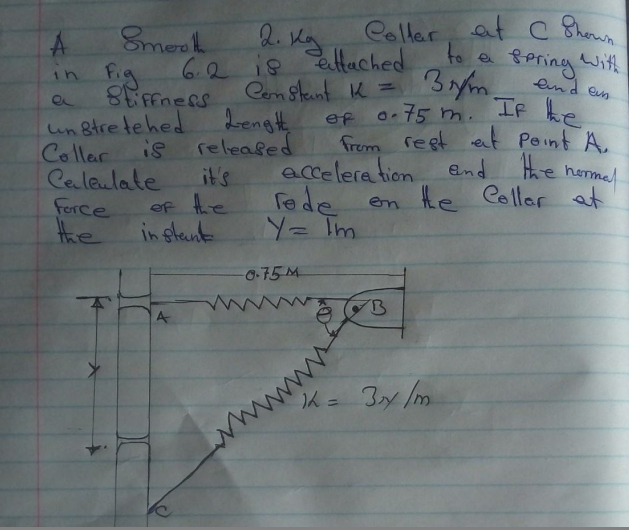 A Smooth 2.kg Collar at C Shown
in Fig 6.2 is attached to a spring with
a Stiffness Constant K = 3N/m and an
unstretched Length of 0.75 m. If the
Collar is released from rest at point A.
Calculate it's acceleration and the normal
force of the rode on the Collar at
the instant Y = 1m
0.75M
A
θ
B
Y
K = 3N/m
C